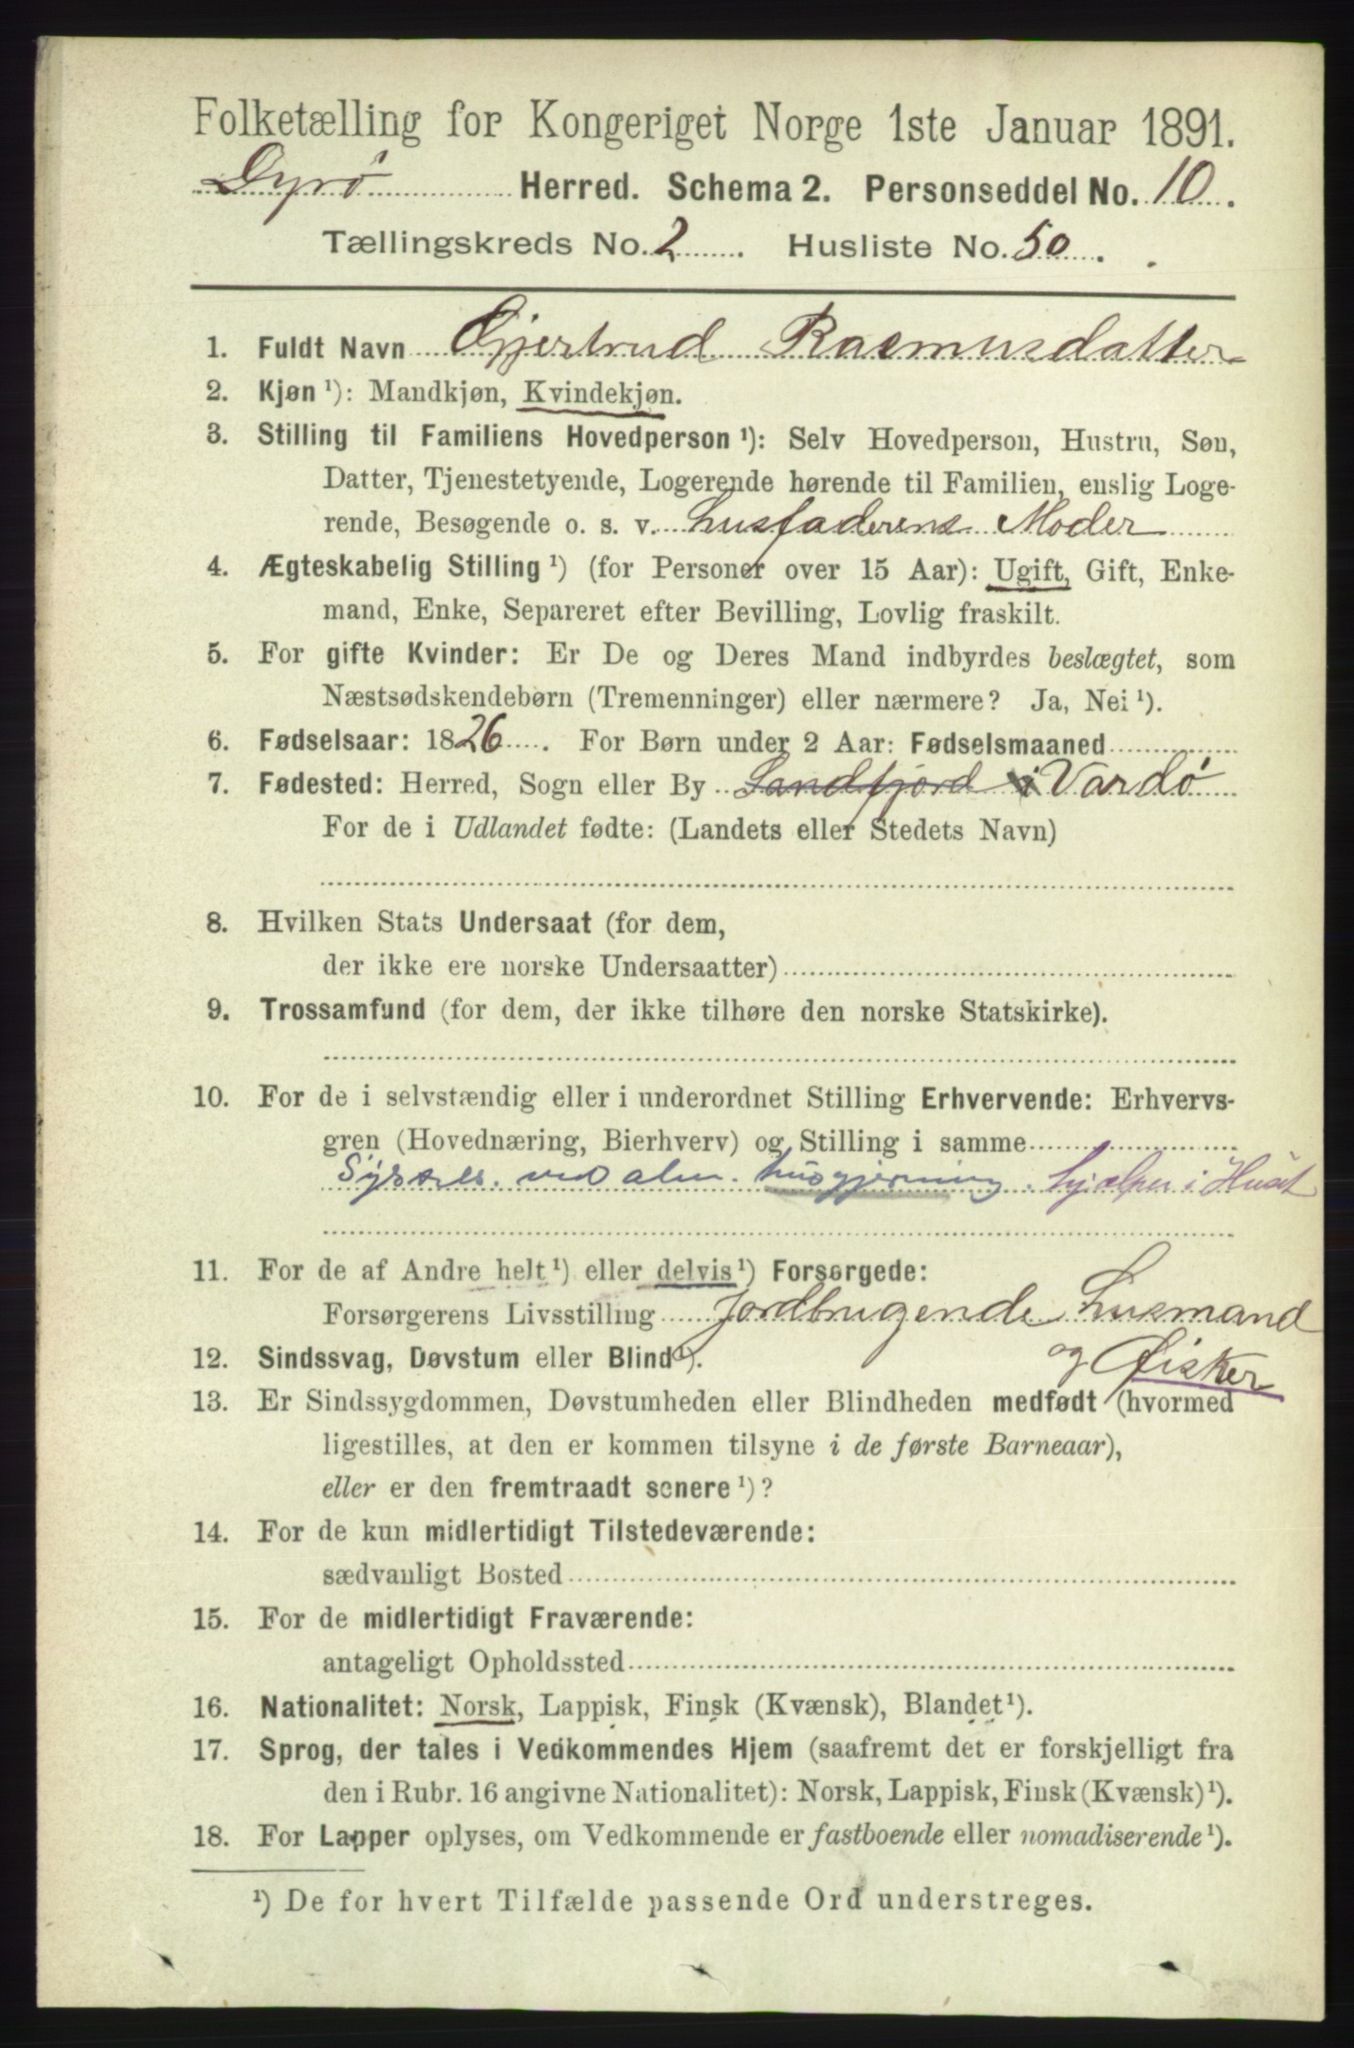 Folketælling for Kongeriget Norge 1ste Januar 1891.
Dyrø Herred. Schema 2. Personseddel No. 10.
Tællingskreds No. 2. Husliste No. 50.
1. Fuldt Navn Gjertrud Rasmusdatter
2. Kjøn ¹): Mandkjøn, Kvindekjøn.
3. Stilling til Familiens Hovedperson ¹): Selv Hovedperson, Hustru, Søn,
Datter, Tjenestetyende, Logerende hørende til Familien, enslig Loge-
rende, Besøgende o. s. v. Husfaderens Moder
4. Ægteskabelig Stilling ¹) (for Personer over 15 Aar): Ugift, Gift, Enke-
mand, Enke, Separeret efter Bevilling, Lovlig fraskilt.
5. For gifte Kvinder: Er De og Deres Mand indbyrdes beslægtet, som
Næstsødskendebørn (Tremenninger) eller nærmere? Ja, Nei ¹).
6. Fødselsaar: 1826. For Børn under 2 Aar: Fødselsmaaned
7. Fødested: Herred, Sogn eller By Sandfjord i Vardø
For de i Udlandet fødte: (Landets eller Stedets Navn)
8. Hvilken Stats Undersaat (for dem,
der ikke ere norske Undersaatter)
9. Trossamfund (for dem, der ikke tilhøre den norske Statskirke).
10. For de i selvstændig eller i underordnet Stilling Erhvervende: Erhvervs-
gren (Hovednæring, Bierhverv) og Stilling i samme
Syssels. ved alm. husgjerning. hjælper i Huset
11. For de af Andre helt ¹) eller delvis ¹) Forsørgede:
Forsørgerens Livsstilling Jordbrugende Husmand
12. Sindssvag, Døvstum eller Blind ¹). og Fisker
13. Er Sindssygdommen, Døvstumheden eller Blindheden medfødt (hvormed
ligestilles, at den er kommen tilsyne i de første Barneaar),
eller er den fremtraadt senere ¹)?
14. For de kun midlertidigt Tilstedeværende:
sædvanligt Bosted
15. For de midlertidigt Fraværende:
antageligt Opholdssted
16. Nationalitet: Norsk, Lappisk, Finsk (Kvænsk), Blandet ¹).
17. Sprog, der tales i Vedkommendes Hjem (saafremt det er forskjelligt fra
den i Rubr. 16 angivne Nationalitet): Norsk, Lappisk, Finsk (Kvænsk) ¹).
18. For Lapper oplyses, om Vedkommende er fastboende eller nomadiserende ¹).
¹) De for hvert Tilfælde passende Ord understreges.